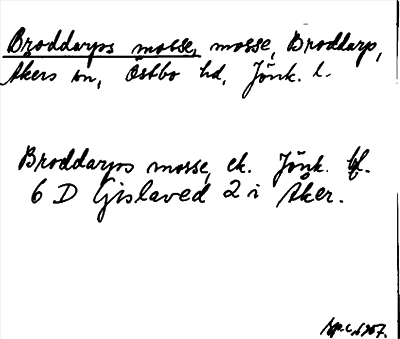 Broddarps mosse, mosse, Broddarp,
Åkers sn, Östbo hd, Jönk. l.
Broddarps mosse, ek. Jönk. bf.
6 D Gislaved 2 i Åker.